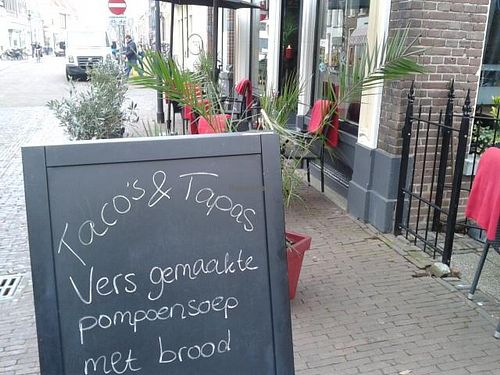 Taco's & Tapas
Vers gemaakte
pompoensoep
met brood